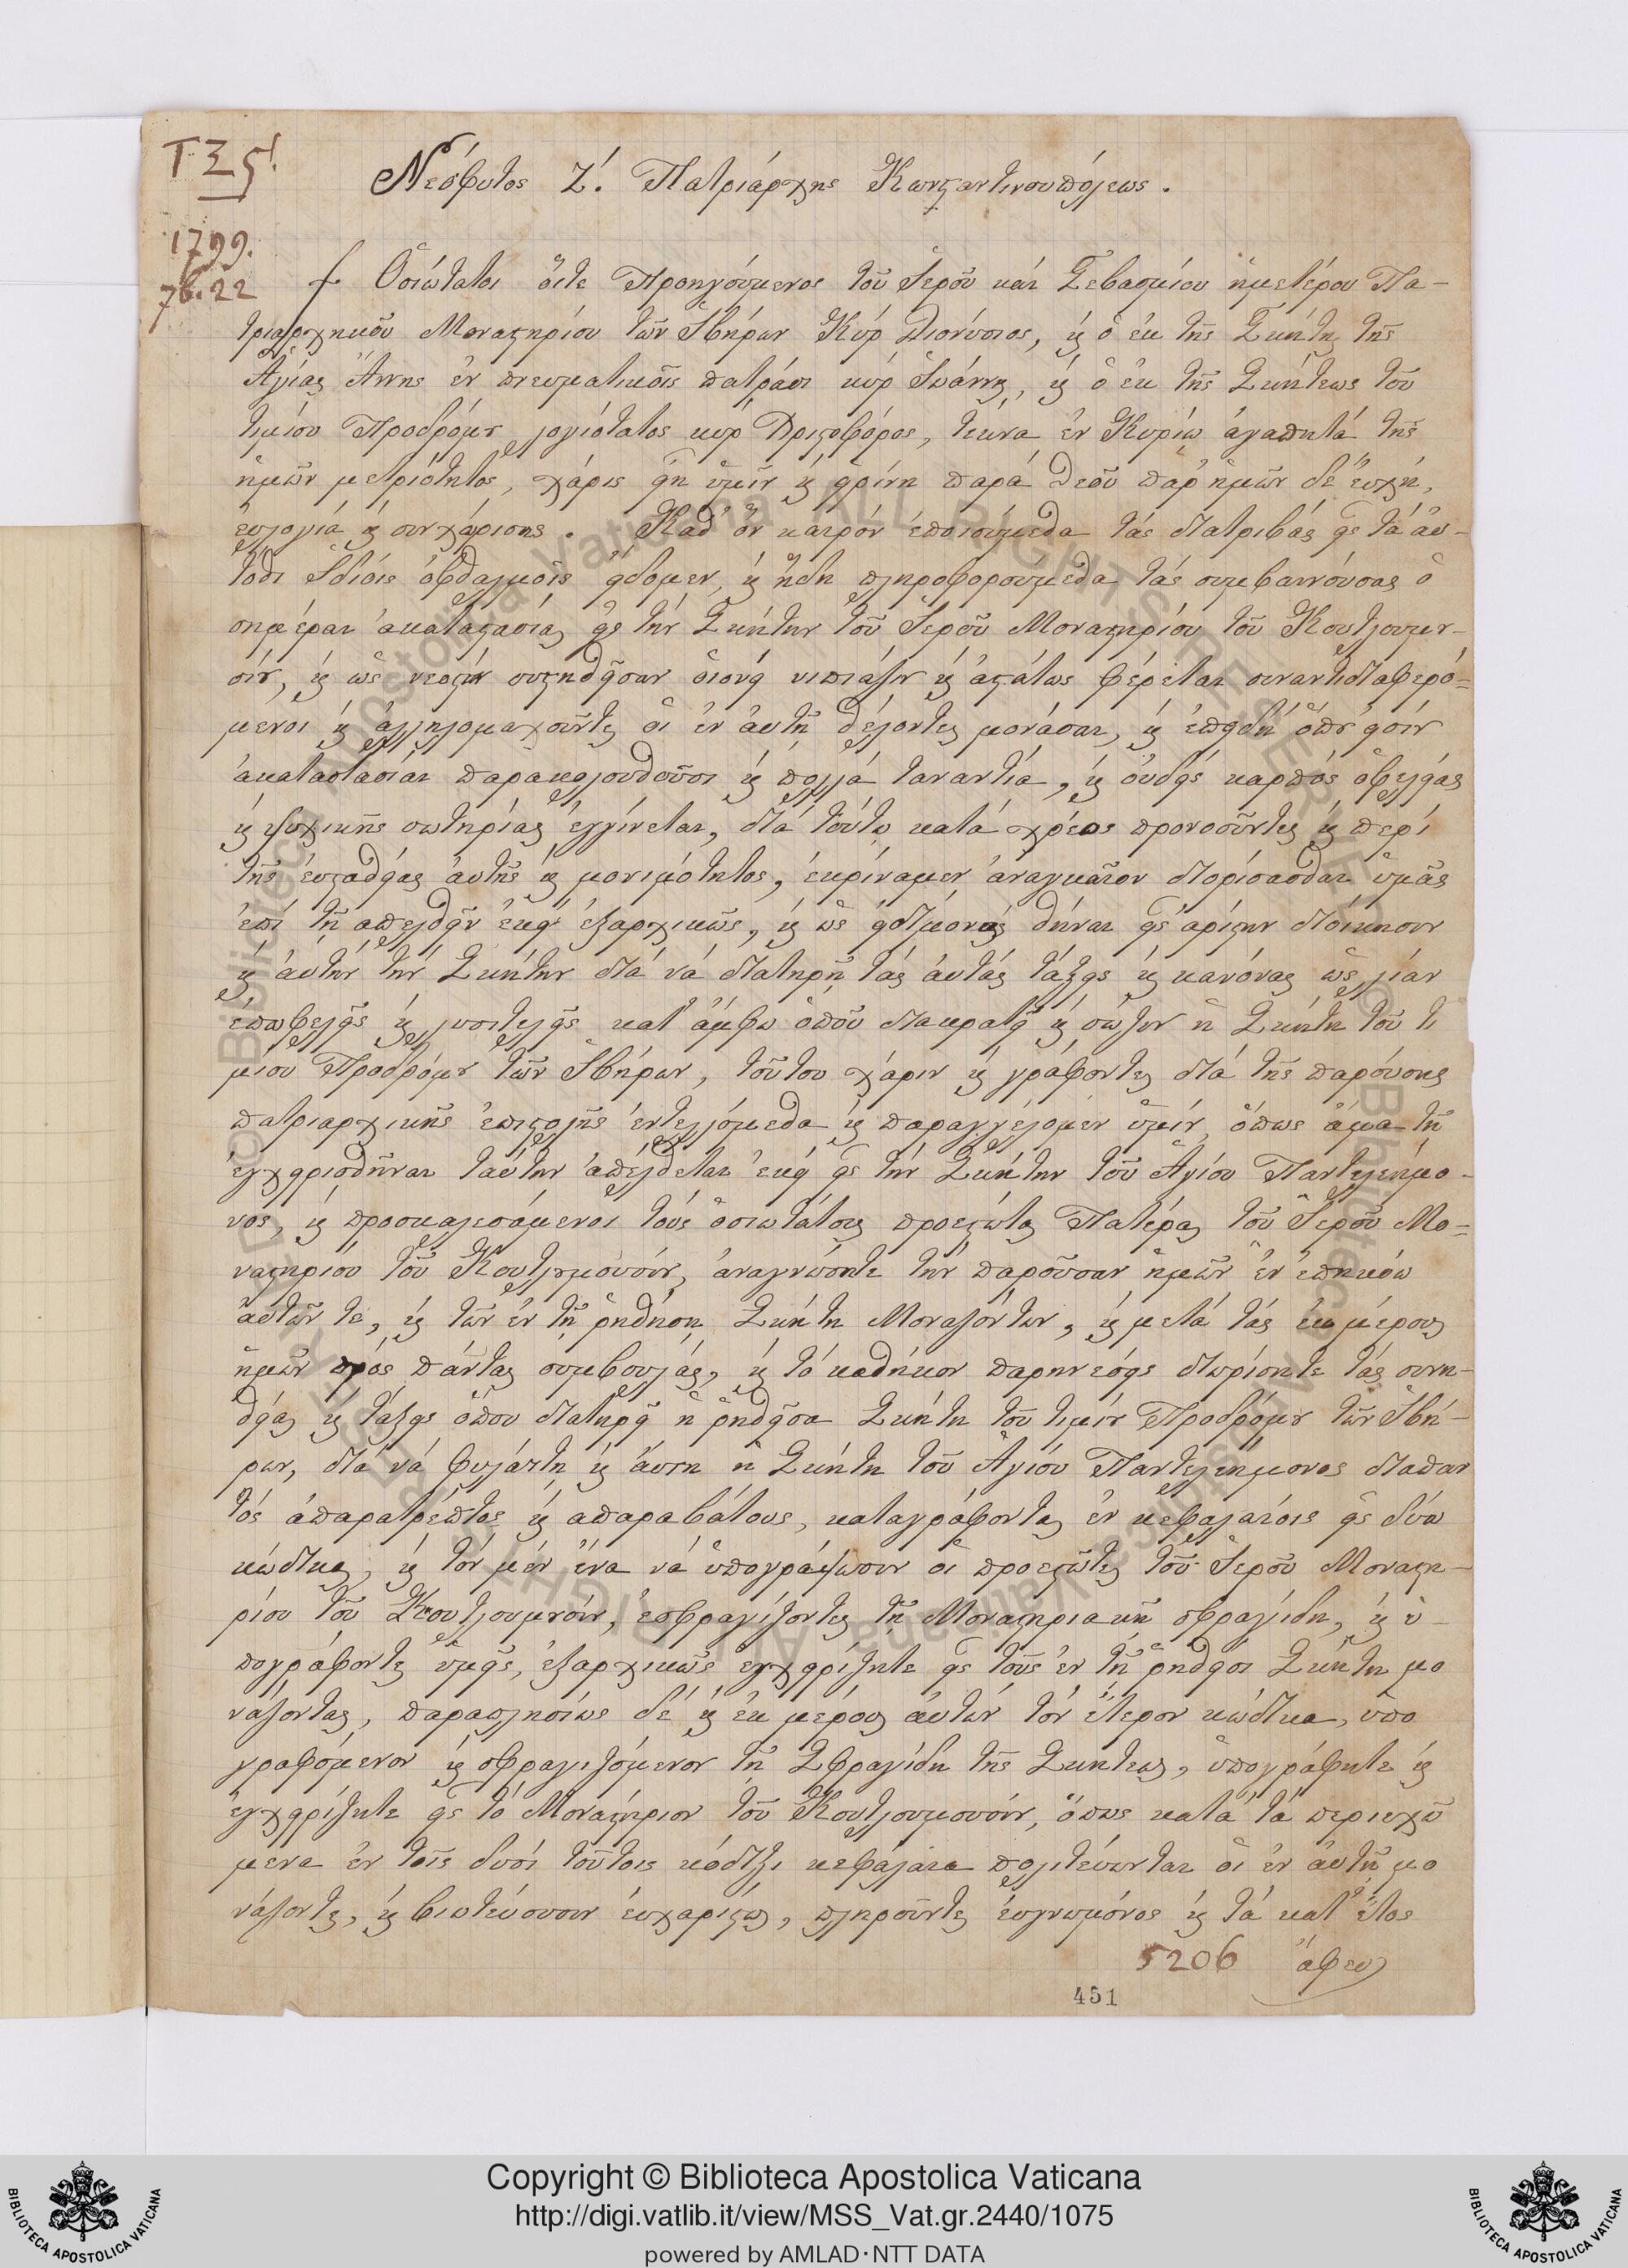 ΤΣϚ'.
Νεόφυτος Ζ'. Πατριάρχης Κωνςαντινουπόλεως.
1799.
7β. 22
† Ὁσιώτατοι ὅιτε Προηγούμενος τοῦ Ἱεροῦ καὶ Σεβασμίου ἡμετέρου Πα-
τριαρχηκοῦ Μοναςηρίου τῶν Ἰβήρων Κὺρ Διονύσιος, ϗ ὁ ἐκ τῆς Σκήτης τῆς
Ἁγίας Ἄννης ἐν πνευματικοῖς πατράσι κὺρ Ἰωάννης, ϗ ὁ ἐκ τῆς Σκήτεως τοῦ
τιμίου Προδρόμȣ λογιότατος κὺρ Χριςοφόρος, τέκνα ἐν Κυρίῳ ἀγαπητὰ τῆς
ἡμῶν μετριότητος, χάρις εἴη ὑμῖν ϗ εἰρήνη παρὰ Θεοῦ παρ' ἡμῶν δὲ ἐυχὴ,
ἐυλογιὰ ϗ συνχώρισης. Καθ' ὃν καιρὸν ἐποιούμεθα τὰς διατριβὰς εἰς τὰ ἀυ-
τόθι ἰδίοις ὀφθαλμοῖς εἴδομεν, ϗ ἤδη πληροφορούμεθα τὰς συμβαινούσας ὁ
σημέραι ἀκαταςασίας εἰς τὴν Σκήτην τοῦ Ἱεροῦ Μοναςηρίου τοῦ Κουτλουμȣ-
σίȣ, ϗ ὡς νεοςὶ συςηθεῖσαν οἱονεὶ νιπιάζειν ϗ ἀςάτως φέρεται συναντιδιαφερό=
μενοι ϗ ἀλληλομαχοῦντες οἱ ἐν ἀυτῆ θέλοντες μονάσαι, ϗ ἐπειδὴ ὅπȣ εἰσὶν
ἀκαταστασίαι παρακολουθοῦσι ϗ πολλὰ ταναντία, ϗ ὀυδεὶς καρπὸς ὀφελείας
ϗ ψυχικῆς σωτηρίας ἐγγίνεται, διὰ τοῦτο κατὰ χρέος προνοοῦντες ϗ περὶ
τῆς ἐυςαθείας ἀυτῆς ϗ μονιμότητος, ἐκρίναμεν ἀναγκαῖον διορίσασθαι ὑμᾶς
ἐπὶ τῆ ἀπελθεῖν ἐκεῖ ἐξαρχικῶς, ϗ ὡς εἰδήμονας θῆναι εἰς ἀρίςην διόικησιν
ϗ ἀυτὴν τὴν Σκήτην διὰ νὰ διατηρῆ τὰς ἀυτὰς τάξεις ϗ κανόνας ὡς λίαν
ἐπωφελεῖς ϗ λυσιτελεῖς κατ' ἄμφω ὁποῦ διακρατεῖ ϗ σώζειν ἡ Σκήτη τοῦ τι
μίου Προδρόμȣ τῶν Ἰβήρων, τούτου χάριν ϗ γράφοντες διὰ τῆς παρούσης
πατριαρχικῆς ἐπιςολῆς ἐντελλόμεθα ϗ παραγγέλομεν ὑμῖν, ὅπως ἅμα τῆ
ἐγχειρισθῆναι ταύτην ἀπέλθεται ἐκεῖ εἰς τὴν Σκήτην τοῦ Ἁγίου Παντελεήμο-
νος, ϗ προσκαλεσάμενοι τοὺς ὁσιωτάτους προεςῶτας Πατέρας τοῦ Ἱεροῦ Μο=
ναςηρίου τοῦ Κουτλȣμουσίȣ, ἀναγνώσητε τὴν παροῦσαν ἡμῶν ἐν ἐπηκόω
ἀυτῶν τε, ϗ τῶν ἐν τῆ ῥηθήση Σκήτη Μοναζόντων, ϗ μετὰ τὰς ἐκ μέρους
ἡμῶν πρὸς πάντας συμβουλὰς, ϗ τὸ καθήκον παρηνέσεις διωρίσητε τὰς συνη-
θείας ϗ τάξεις ὁπου διατηρεῖ ἡ ῥηθεῖσα Σκήτη τοῦ τιμίȣ Προδρόμȣ τῶν Ἰβή-
ρων, διὰ νὰ φυλάττη ϗ ἄυτη ἡ Σκήτη τοῦ Ἁγίου Παντελεήμονος διαπαν
τὸς ἀπαρατρέπτος ϗ ἀπαραβάτους, καταγράφοντες ἐν κεφαλαίοις εἰς δύω
κώδικας, ϗ τὸν μὲν ἕνα νὰ ὑπογράψωσιν οἱ προεςῶτες τοῦ Ἱεροῦ Μοναςη-
ρίου τοῦ Κουτλουμȣσίȣ, ἐσφραγίζοντες τῆ Μοναςηριακῆ σφραγίδη, ϗ ὑ-
πογράφοντες ὑμεῖς, ἐξαρχικῶς ἐγχειρίζητε εἰς τοὺς ἐν τῆ ῥηθείσι Σκήτη μο
νάζοντας, παραπλησίως δὲ ϗ ἐκ μέρους ἀυτῶν τὸν ἕτερον κώδικα, ὑπο
γραφόμενον ϗ σφραγιζόμενον τῆ Σφραγίδη τῆς Σκήτεως, ὑπογράφητε ϗ
ἐγχειρίζητε εἰς τὸ Μοναςήριον τοῦ Κουτλουμουσίȣ, ὅπως κατὰ τὰ περιεχῦ
μενα ἐν τοῖς δυσὶ τούτοις κόδιξι κεφάλαια πολιτεύωνται οἱ ἐν ἀυτῆ μο
νάζοντες, ϗ βιωτεύουσιν ἐυχαρίςως, πληροῦντες ἐυγνωμόνος ϗ τὰ κατ' ἔτος
5206 ἄφευ
451
Copyright © Biblioteca Apostolica Vaticana
http://digi.vatlib.it/view/MSS_Vat.gr.2440/1075
powered by AMLAD·NTT DATA
BIBLIOTECA APOSTOLICA VATICANA
BIBLIOTECA APOSTOLICA VATICANA